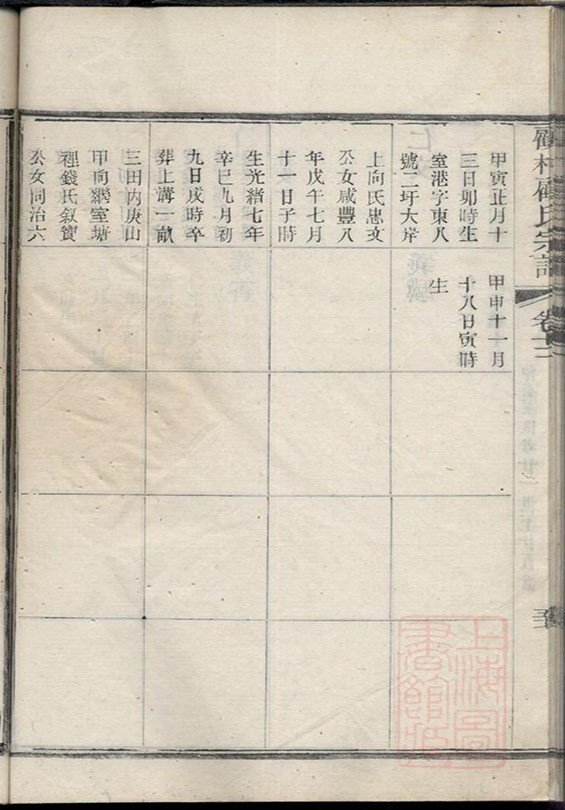 顧村顧氏宗譜
卷十二
甲寅正月十
三日卯時生
室港字東八
號二圩大岸
上向氏忠文
公女咸豐八
年戊午七月
十一日子時
生光緒七年
辛巳九月初
九日戌時卒
葬上溝一畝
三田內庚山
甲向繼室塘
裡錢氏敘寶
公女同治六
甲申十一月
十八日寅時
生
上海圖
書館藏